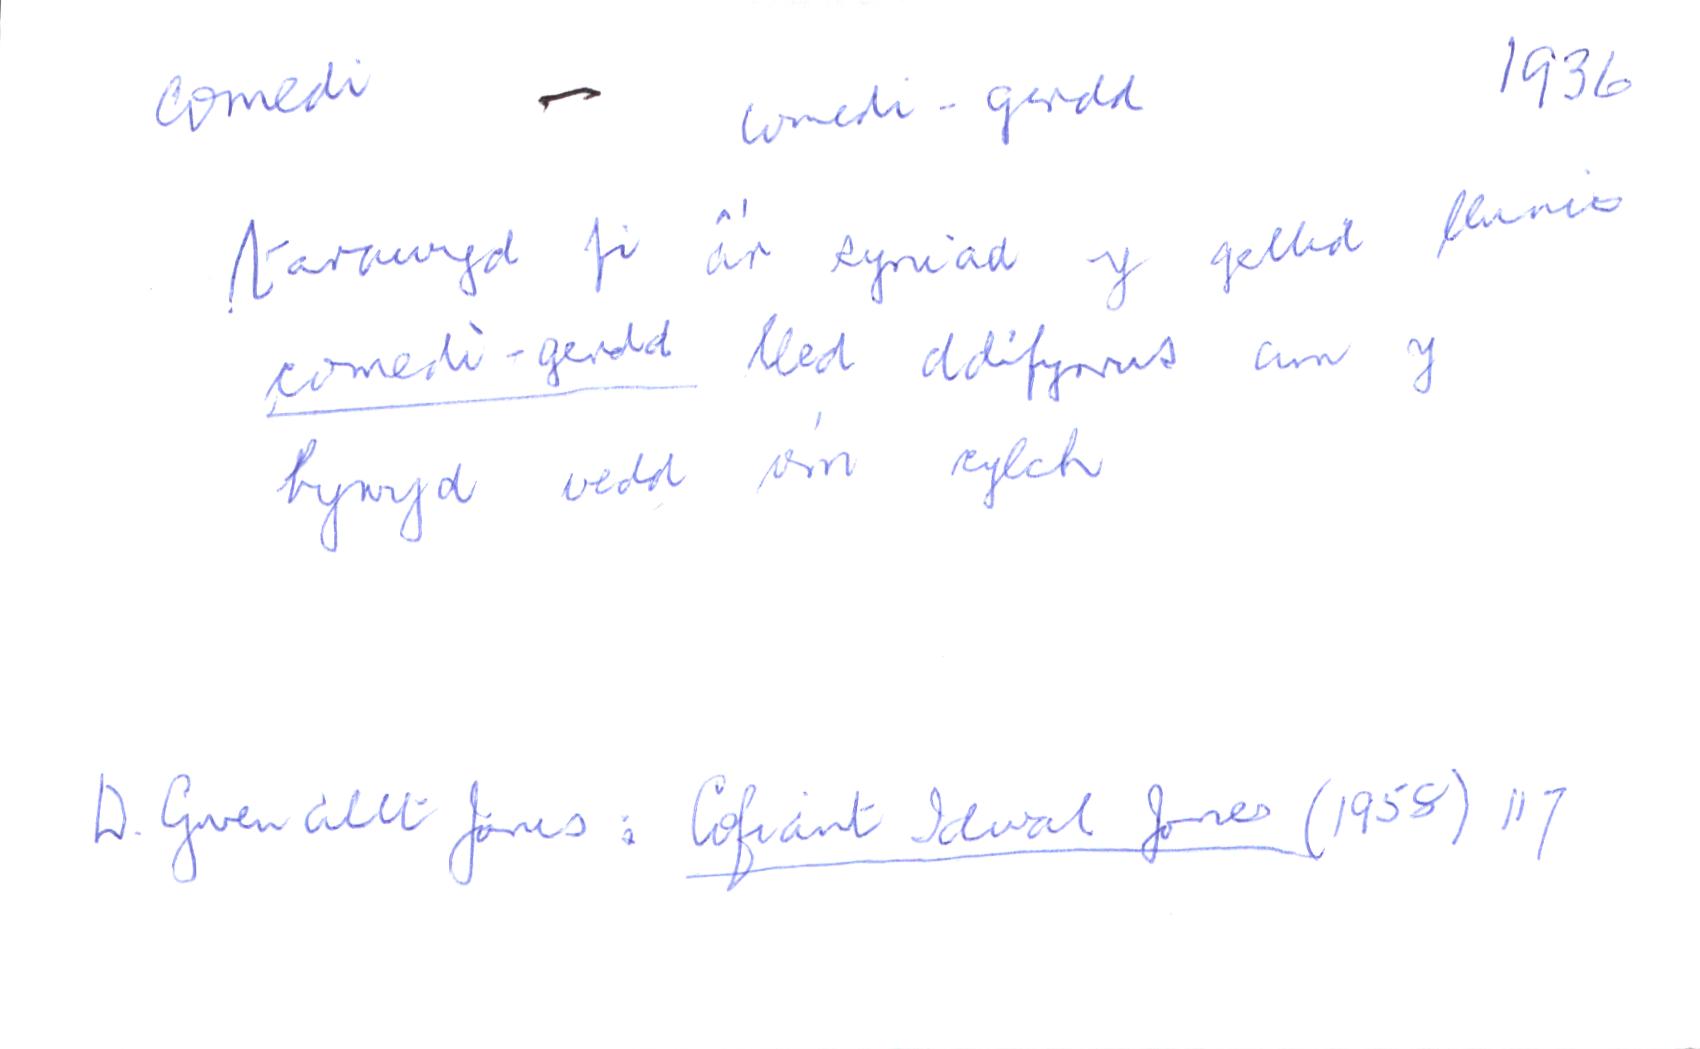 comedi – comedi-gerdd 1936
Tarawyd fi â'r syniad y gellid llunio
comedi-gerdd lled ddifyrrus am y
bywyd oedd o'm cylch
D. Gwenallt Jones: Cofiant Idwal Jones (1958) 117